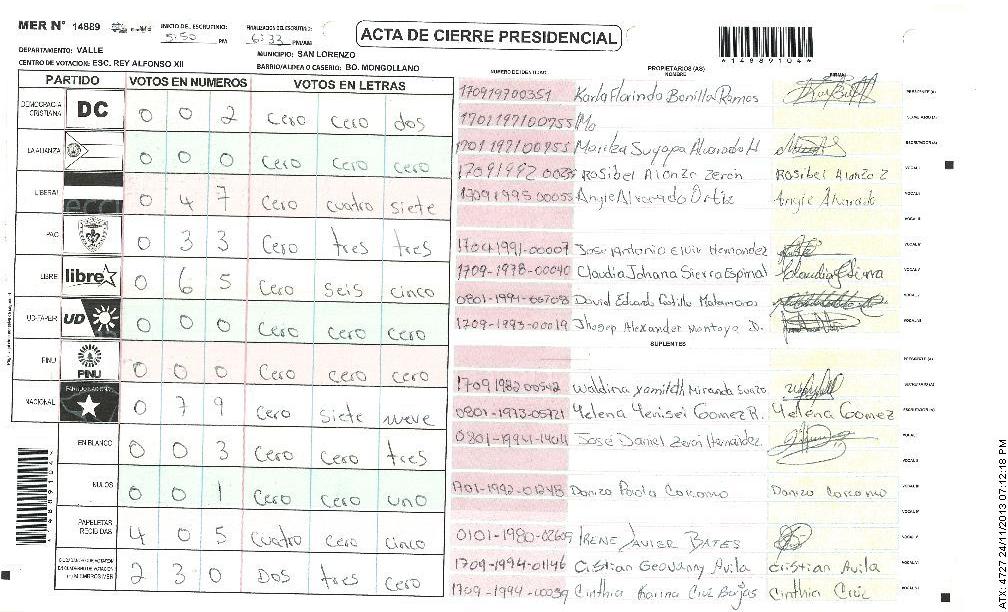 MER N° 14889 INICIO DEL ESCRUTINIO: 5:50 PM FINALIZACION DEL ESCRUTINIO: 6:33 PM/AM
ACTA DE CIERRE PRESIDENCIAL
*14889104*
DEPARTAMENTO: VALLE MUNICIPIO: SAN LORENZO
CENTRO DE VOTACION: ESC. REY ALFONSO XII BARRIO/ALDEA O CASERIO: BO. MONGOLLANO
PARTIDO VOTOS EN NUMEROS VOTOS EN LETRAS
DEMOCRACIA CRISTIANA DC 0 0 2 Cero Cero dos
LA ALIANZA 0 0 0 Cero Cero Cero
LIBERAL 0 4 7 Cero cuatro siete
PAC 0 3 3 Cero tres tres
LIBRE libre 0 6 5 Cero seis cinco
UD-FAPER UD 0 0 0 Cero Cero Cero
PINU PINU 0 0 0 Cero Cero Cero
NACIONAL PARTIDO NACIONAL 0 7 9 Cero siete nueve
EN BLANCO 0 0 3 Cero Cero tres
NULOS 0 0 1 Cero Cero uno
PAPELETAS RECIBIDAS 4 0 5 Cuatro Cero Cinco
2 3 0 Dos tres Cero
NUMERO DE IDENTIDAD PROPIETARIOS (AS) NOMBRE FIRMA
170919700351 Karla Florinda Bonilla Ramos PRESIDENTE (A)
1701197100955
1701197100955 Maritza Suyapa Alvarado H SECRETARIO (A)
Rosibel Alonzo Zeron Rosibel Alonzo Z VOCAL I
1709199500055 Angie Alvarado Ortiz Angie Alvarado VOCAL II
VOCAL III
1704-1991-00007 Jose Antonio Elvir Hernandez VOCAL IV
1709-1978-00040 Claudia Johana Sierra Espinal Claudia E Sierra VOCAL V
David Eduardo Matamoros
1709-1993-00019 Jhosep Alexander Montoya D. VOCAL VII
SUPLENTES
PRESIDENTE (A)
1709 1982 00542 Waldina Xamileth Miranda
0801-1973-05721 Yelena Yenisei Gomez R. Yelena Gomez
0801-1994-14014 José Daniel Zeron Hernández VOCAL I
VOCAL II
1701-1992-01248 Daniza Paola Carcamo Daniza Carcamo VOCAL III
VOCAL IV
0101-1980-02609 IRENE JAVIER BATES VOCAL V
1709-1994-01146 Cristian Geovanny Avila Cristian Avila VOCAL VI
1709-1994-00039 Cinthia Karina Cruz Cinthia Cruz VOCAL VII
*14889104*
RTX: 4727 24/11/2013 07:12:18 PM